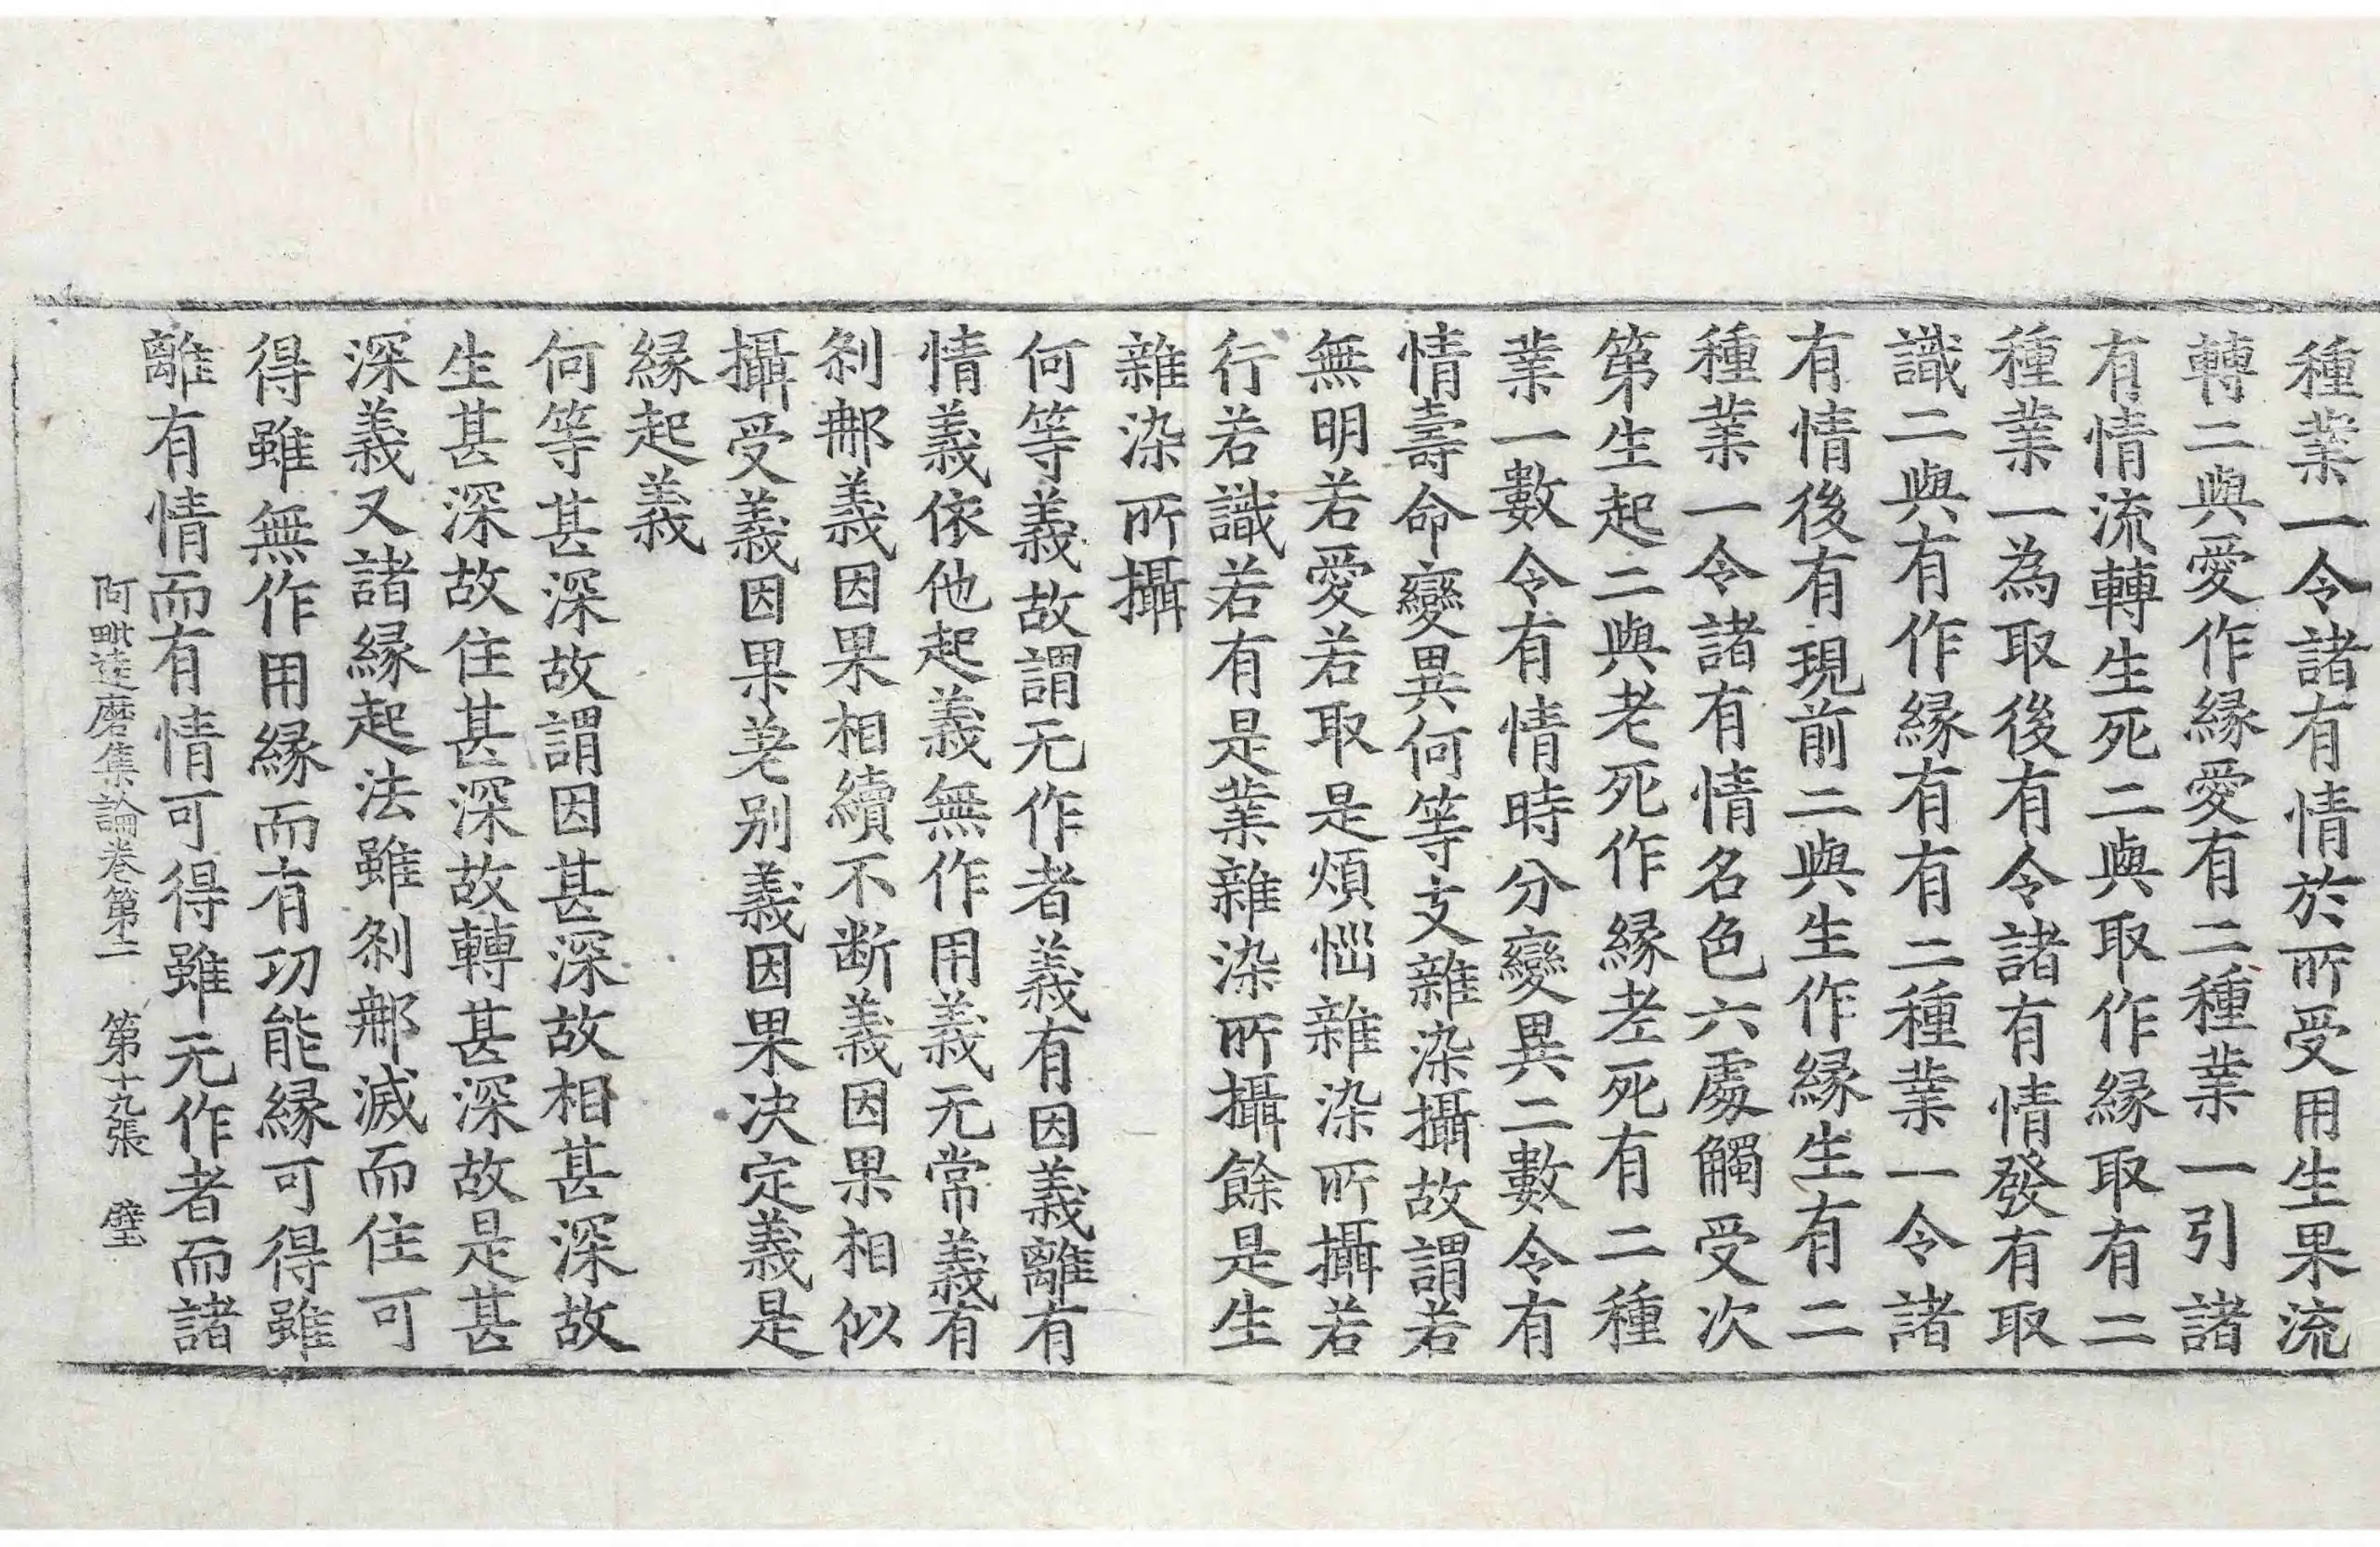 種業一令諸有情於所受用生果流
轉二與愛作縁愛有二種業一引諸
有情流轉生死二與取作縁取有二
種業一為取後有令諸有情發有取
識二與有作縁有有二種業一令諸
有情後有現前二與生作縁生有二
種業一令諸有情名色六處觸受次
第生起二與老死作縁老死有二種
業一數令有情時分變異二數令有
情壽命變異何等支雜染攝故謂若
無明若愛若取是煩惱雜染所攝若
行若識若有是業雜染所攝餘是生
雜染所攝
何等義故謂无作者義有因義離有
情義依他起義無作用義无常義有
刹那義因果相續不断義因果相似
攝受義因果差别義因果决定義是
縁起義
何等甚深故謂因甚深故相甚深故
生甚深故住甚深故轉甚深故是甚
深義又諸縁起法雖刹那滅而住可
得雖無作用縁而有功能縁可得雖
離有情而有情可得雖无作者而諸
阿毗達磨集論卷第二　第十九張　璧